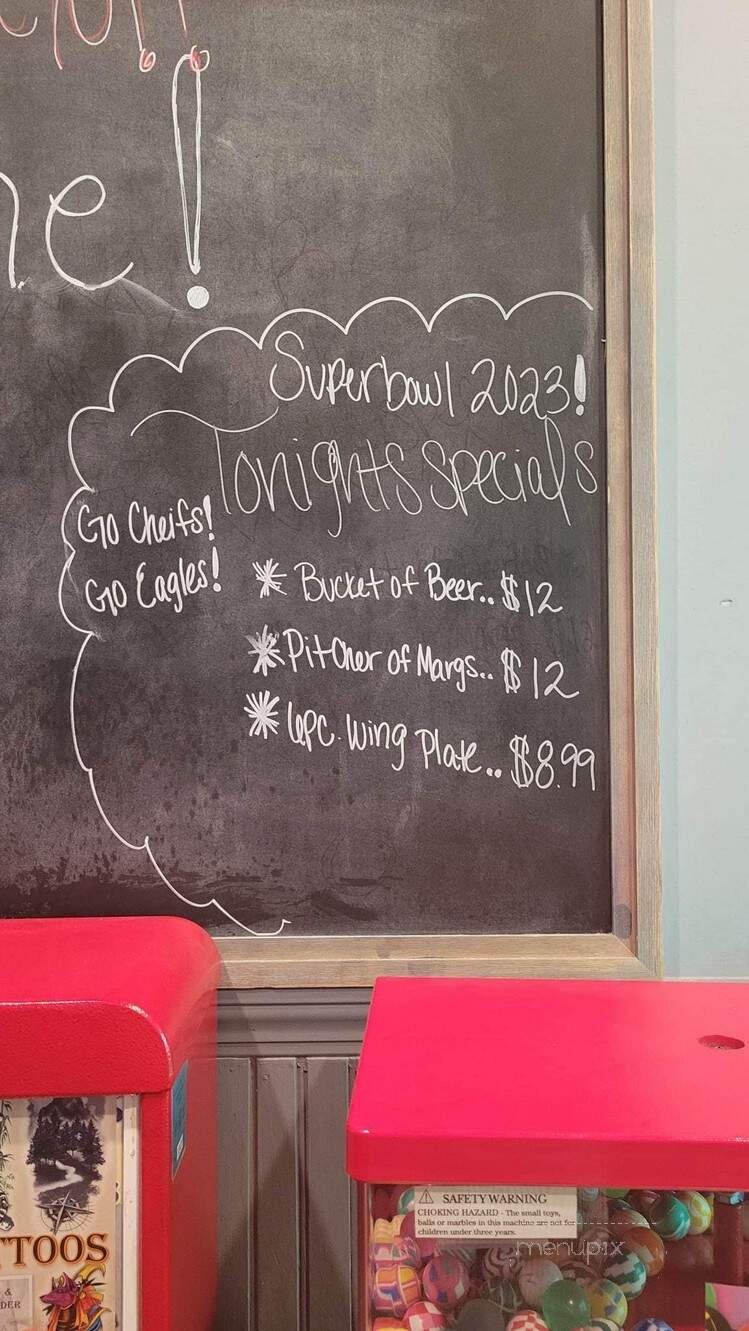 Superbowl 2023!
Tonights Specials
Go Cheifs!
Go Eagles!
* Bucket of Beer.. $12
* Pitcher of Margs.. $12
* 6pc. Wing Plate.. $8.99
SAFETY WARNING
CHOKING HAZARD - The small toys,
balls or marbles in this machine are not for
children under three years.
TTOOS
&
DER
menupix